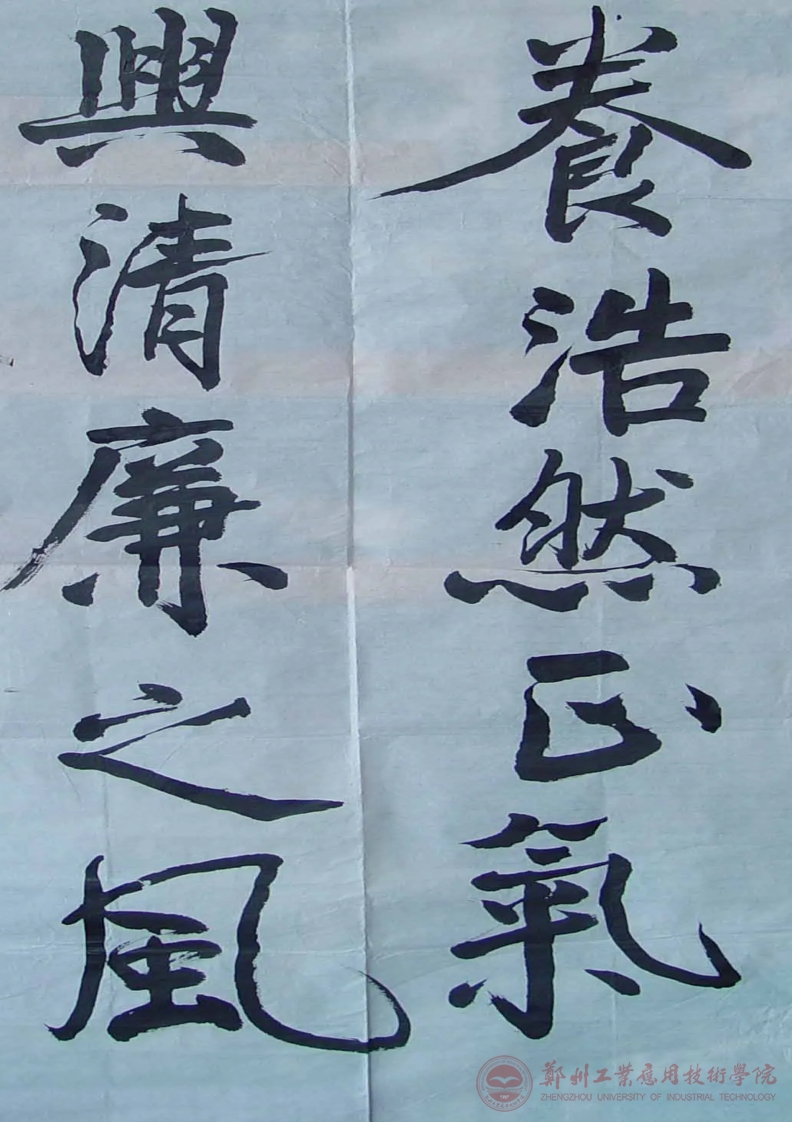 養浩然正氣
興清廉之風
鄭州工業應用技術學院
ZHENGZHOU UNIVERSITY OF INDUSTRIAL TECHNOLOGY